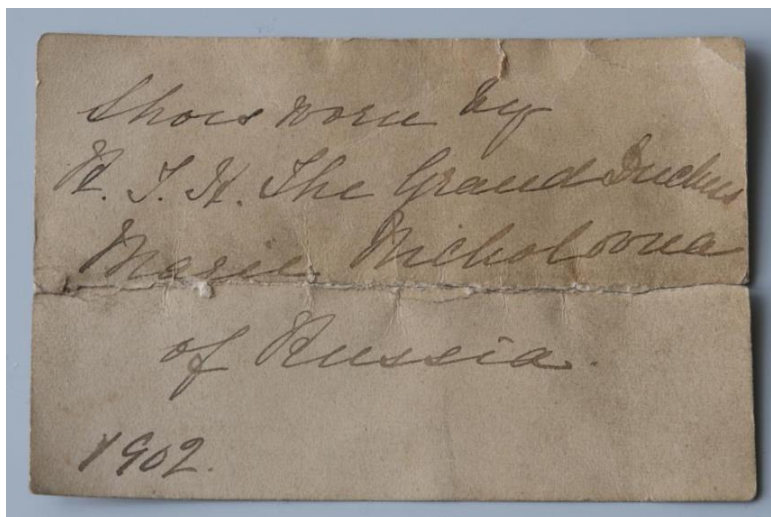 Shoes worn by
H. I. H. The Grand Duchess
Marie Nicholovna
of Russia.
1902.